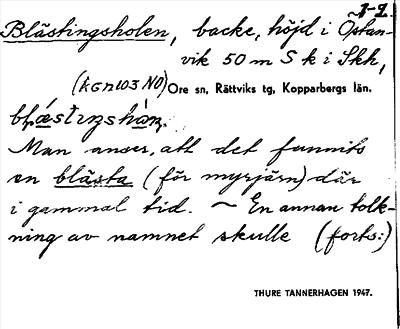 1-2.
Blästingsholen, backe, höjd i Östan-
vik 50 m S k i Skh,
(kgn 103 NO) Ore sn, Rättviks tg, Kopparbergs län.
Man anser, att det funnits
en blästa (för myrjärn) där
i gammal tid. ~ En annan tolk-
ning av namnet skulle (forts:)
THURE TANNERHAGEN 1947.